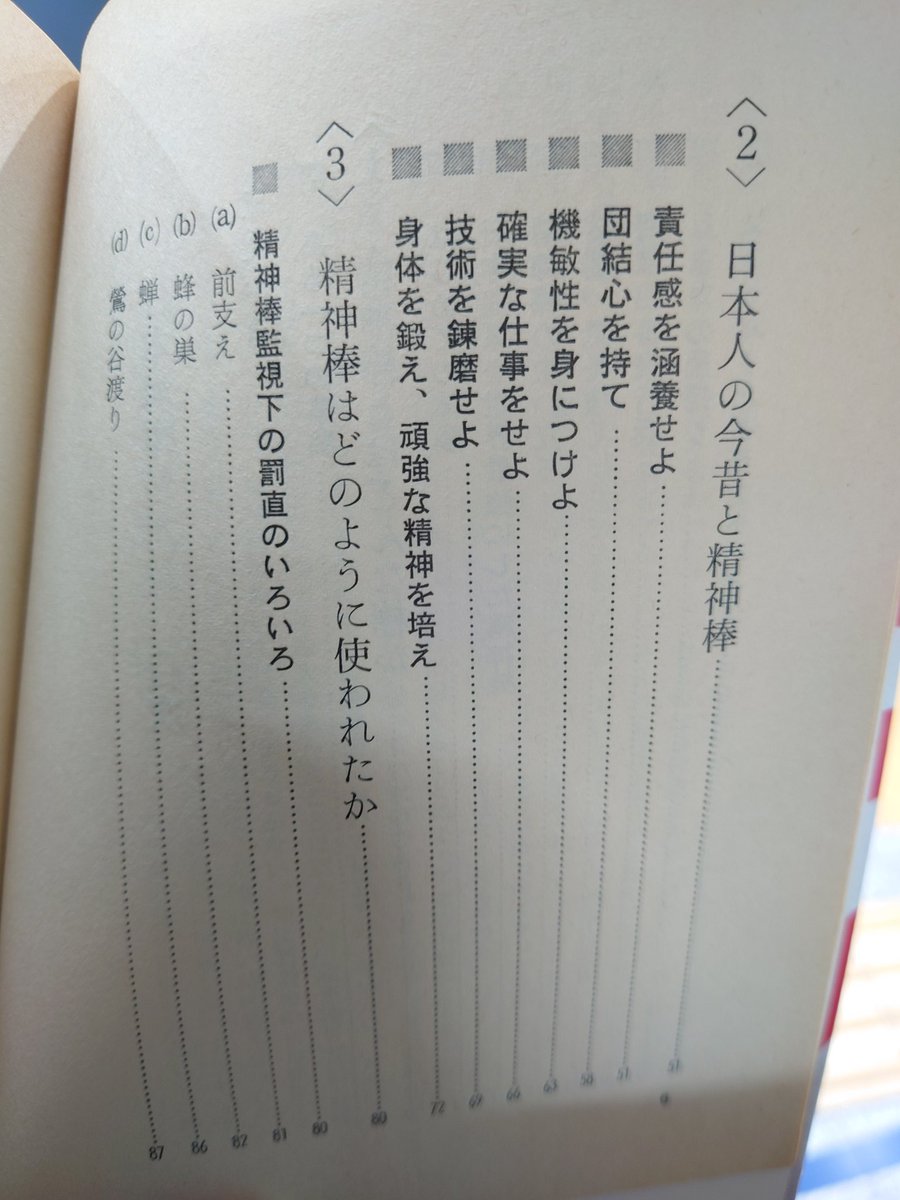 〈2〉 日本人の今昔と精神棒……51
責任感を涵養せよ
団結心を持て……51
機敏性を身につけよ
確実な仕事をせよ……63
技術を錬磨せよ……66
身体を鍛え、頑強な精神を培え……72
〈3〉 精神棒はどのように使われたか……80
精神棒監視下の罰直のいろいろ……80
(a) 前支え……81
(b) 蜂の巣……82
(c) 蝉……86
(d) 鶯の谷渡り……87